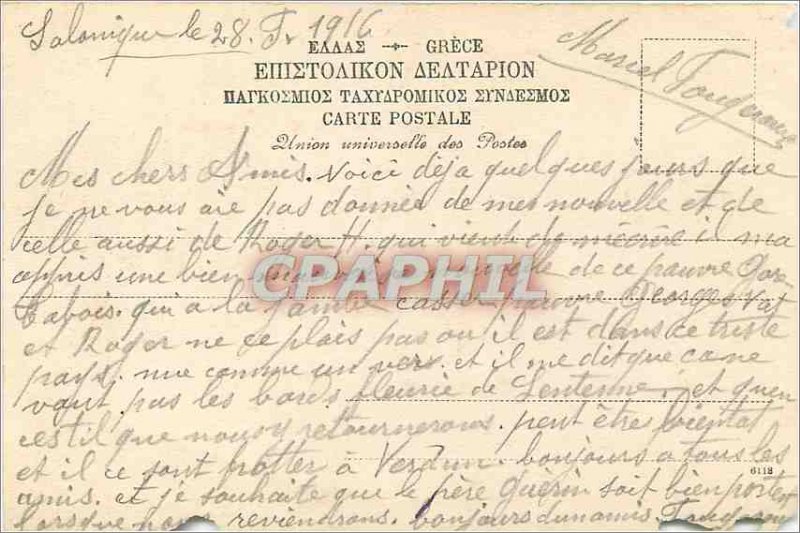 Salonique le 28. F. 1916
Marcel
ΕΛΛΑΣ GRÈCE
ΕΠΙΣΤΟΛΙΚΟΝ ΔΕΛΤΑΡΙΟΝ
ΠΑΓΚΟΣΜΙΟΣ ΤΑΧΥΔΡΟΜΙΚΟΣ ΣΥΝΔΕΣΜΟΣ
CARTE POSTALE
Union universelle des Postes
Mes chers Amis. Voici déja quelques jours que
je ne vous aie pas donnée de mes nouvelle et de
celle aussi de Roger H. qui vient de m'ecrire il ma
appris une bien mauvaise nouvelle de ce pauvre
qui a la jambe casser pauvre Georges Vat
et Roger ne ce plais pas ou il est dans ce triste
pays. nue comme un ver. et il me dit que ca ne
vaut pas les bords fleurie de et quen
cestil que nousy retournerons. peut être bientot
et il ce sont frotter à Verdun. bonjours a tous les
amis. et je souhaite que le père Guérin soit bien portent
lorsque nous reviendrons. bonjours dun amis.
6118
CPAPHIL